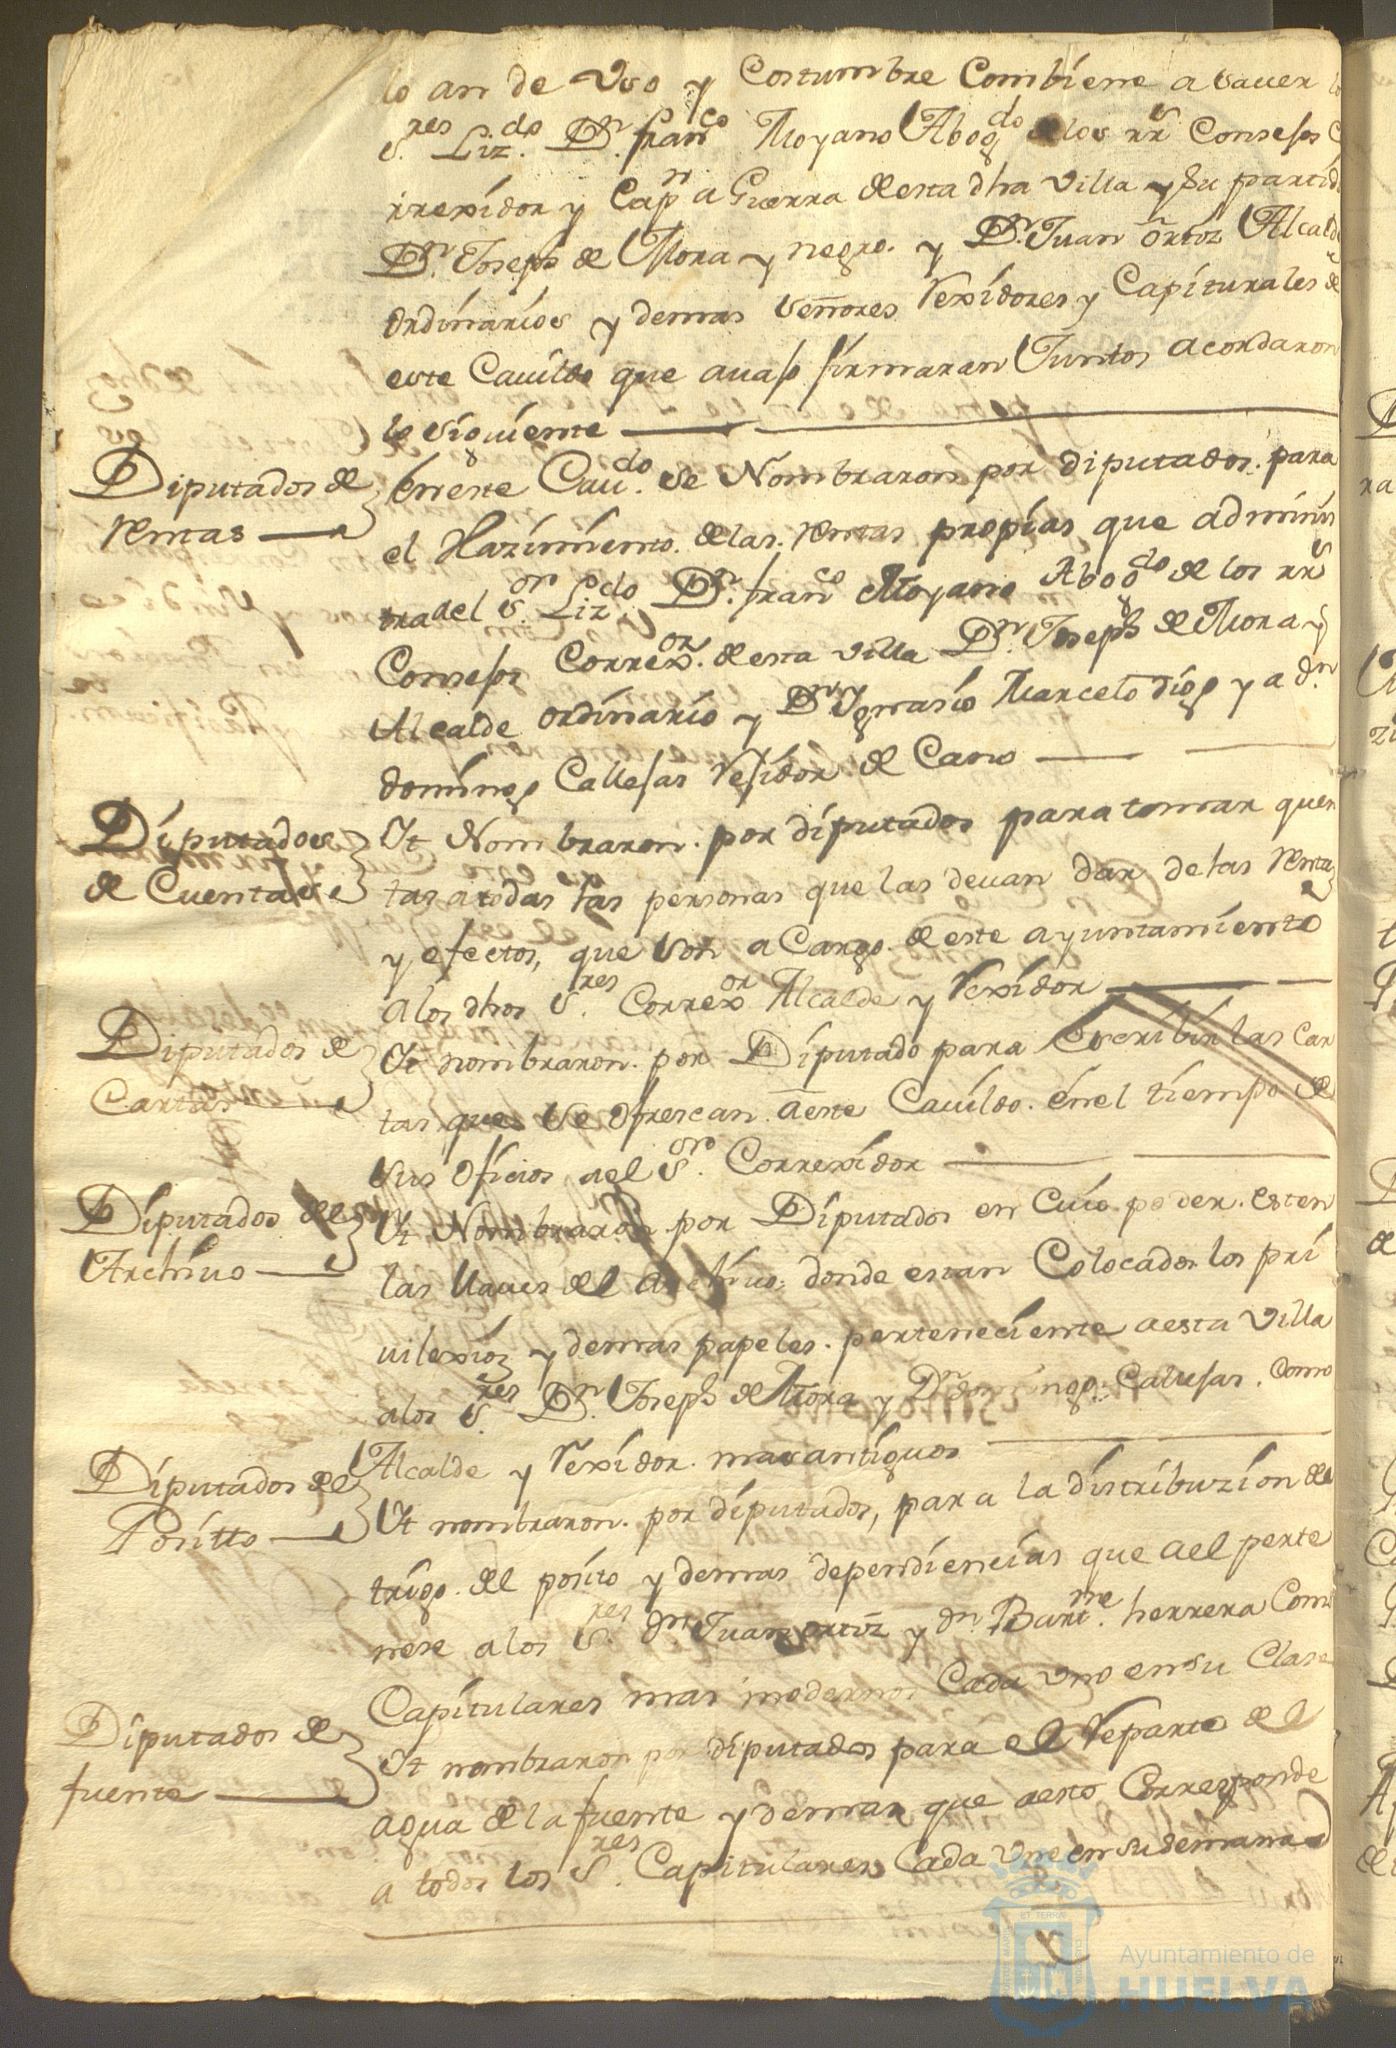 lo an de Vso y Costumbre Combiene a sauer
S.res Liz.do D.n fran.co Moyano Abog.do de los rr.s Consejos
rrexidor y Cap.n a Guerra de esta dha villa y su partid
D.n Joseph de Mora y negro. y D.n Juan ortiz Alcald
ordinarios y demas señores Rexidores y Capiturales de
este Cauildo que auajo firmaran Juntos acordaron
lo siguiente
Diputados de
Rentas
En este Cau.do se Nombraron por diputados para
el Hazimiento de las Rentas propias que adminis
tra del S.or Liz.do D.n fran.co Moyano Abog.do de los rr.s
Consejos Correx.or de esta villa D.n Joseph de Mora y
Alcalde ordinario y D.n Ygnasio Marcelo Digo y a d.n
domingo Callejas Rejidor de Cano
Diputados
de Cuentas
Yt Nombraron por diputados para tomar quen
tas a todas las personas que las deuan dar de las Rentas
y efectos, que son a Cargo de este ayuntamiento
a los dhos S.res Correx.or Alcalde y Rexidor
Diputados de
Cartas
Yt nombraron por Diputado para Escribir las Car
tas que se ofrescan a este Cauildo en el tiempo de
sus oficios a el S.or Correxidor
Diputados de el
Archiuo
Yt Nombraron por Diputados en Cuio poder esten
las llaues de el Archiuo, donde estan Colocados los pri
uilexios y demas papeles perteneciente a esta Villa
a los S.res D.n Joseph de Mora y D.n domingo Callejas. Como
Alcalde y Rexidor mas antiguos
Diputados de el
Positto
Yt nombraron por diputados, para la distribuzion de el
trigo de el posito y demas dependiencias que a el perte
nese a los S.res d.n Juan ortiz y d.n Bart.me herrera Como
Capitulares mas modernos Cada uno en su Clase
Diputados de
fuente
Yt nombraron por diputados para el Reparto de el
agua de la fuente y demas que a esto Corresponde
a todos los S.res Capitulares Cada Vno en su semana
Ayuntamiento de
HUELVA